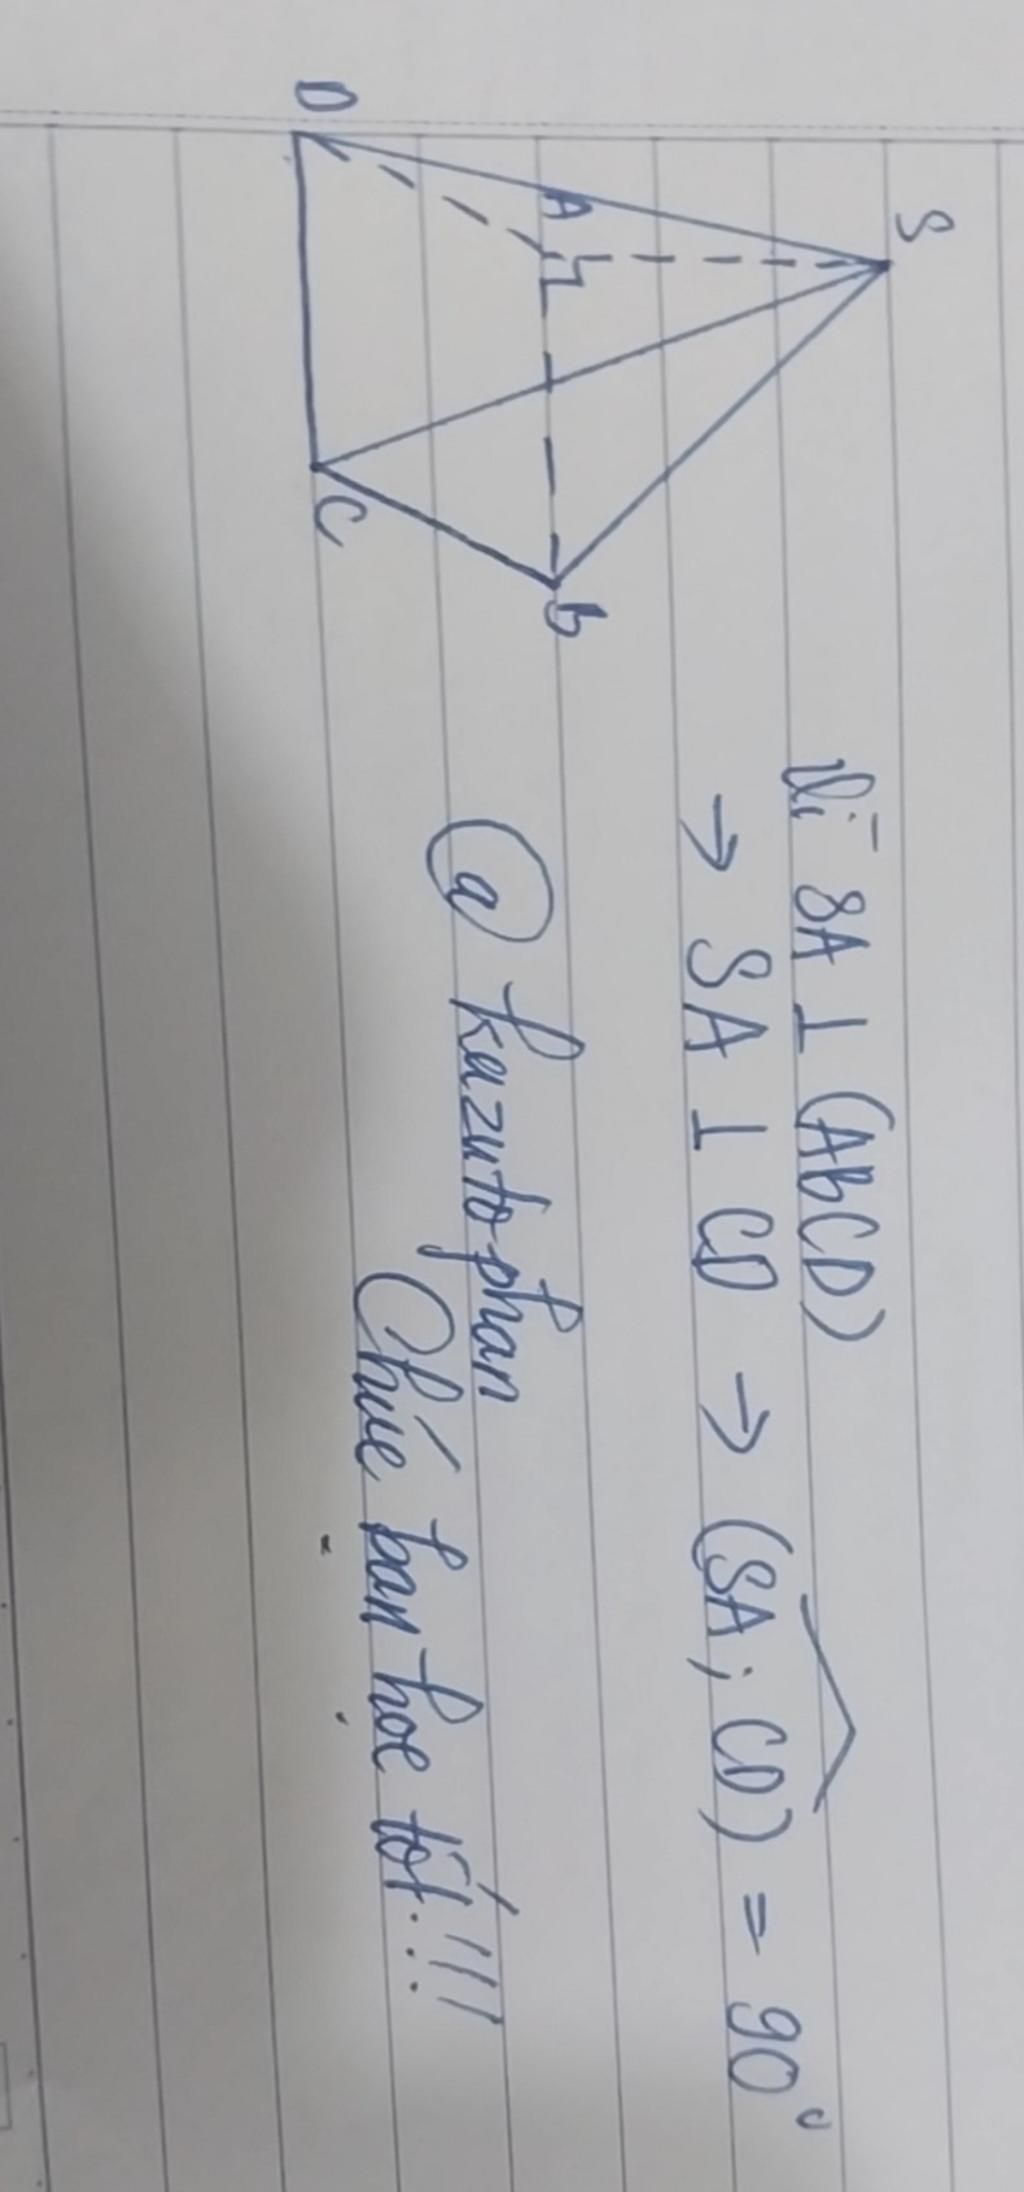 S
A
D
C
B
Vì SA ⊥ (ABCD)
→ SA ⊥ CD → (SA; CD) = 90°
@ kazutophan
Chúc bạn học tốt!!!